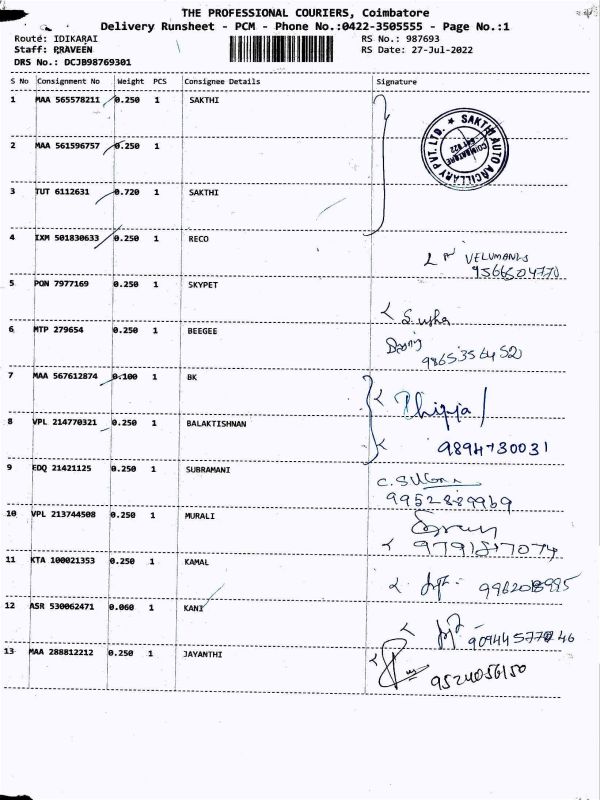 THE PROFESSIONAL COURIERS, Coimbatore
Delivery Runsheet - PCM - Phone No.:0422-3505555 - Page No.:1
Route: IDIKARAI RS No.: 987693
Staff: PRAVEEN RS Date: 27-Jul-2022
DRS No.: DCJB98769301
S No Consignment No Weight PCS Consignee Details Signature
1 MAA 565578211 0.250 1 SAKTHI
SAKTHI AUTO ANCILLARY PVT. LTD. ★ COIMBATORE
2 MAA 561596757 0.250 1
3 TUT 6112631 0.720 1 SAKTHI
4 IXM 501830633 0.250 1 RECO
VELUMANI
5 PON 7977169 0.250 1 SKYPET
Susha
6 MTP 279654 0.250 1 BEEGEE
9865356452
7 MAA 567612874 0.100 1 BK
8 VPL 214770321 0.250 1 BALAKTISHNAN
9894730031
9 EDQ 21421125 0.250 1 SUBRAMANI
9952889969
10 VPL 213744508 0.250 1 MURALI
11 KTA 100021353 0.250 1 KAMAL
12 ASR 530062471 0.060 1 KANI
13 MAA 288812212 0.250 1 JAYANTHI
9524056150